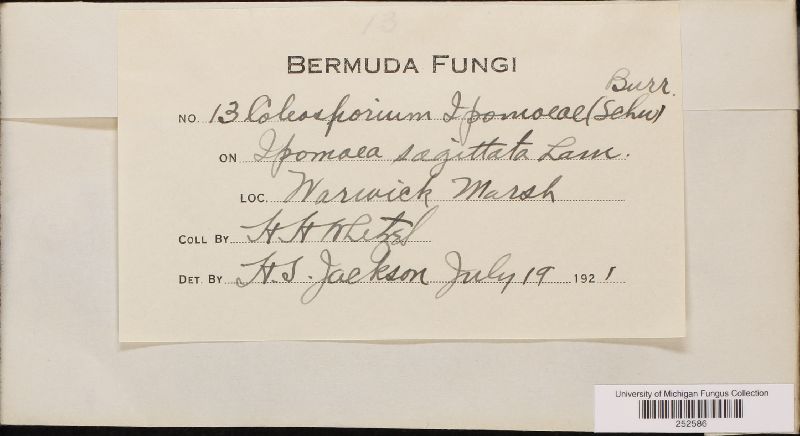 13
BERMUDA FUNGI
Burr.
NO. 13 Coleosporium Ipomoeae (Schw)
ON Ipomoea sagittata Lam.
LOC. Warwick Marsh
COLL BY H H Whetzel
DET. BY H.S. Jackson July 19 1921
University of Michigan Fungus Collection
252586